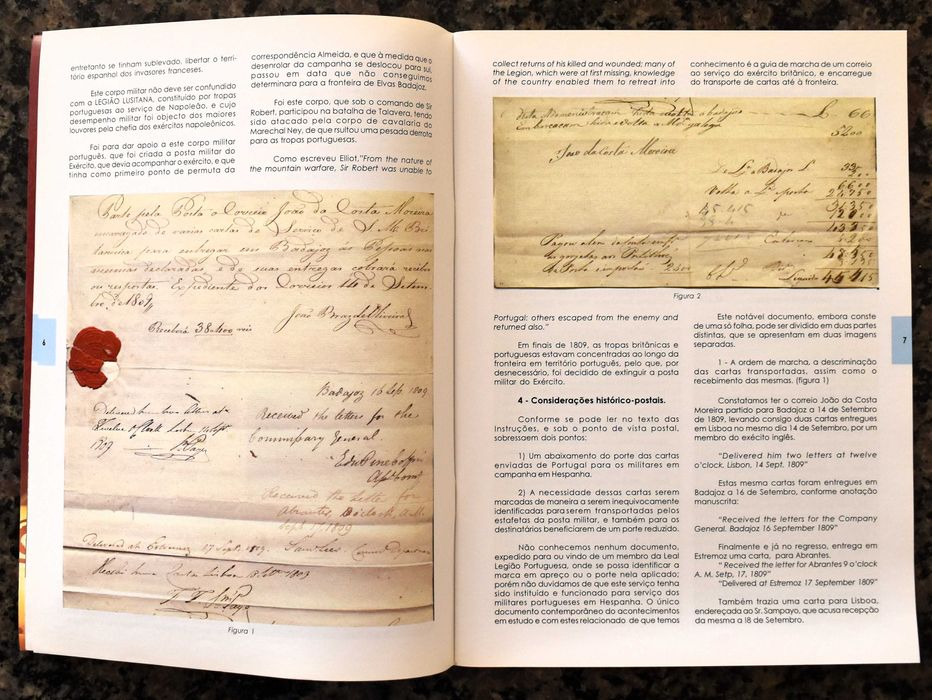 entretanto se tinham sublevado, libertar o terri-
tório espanhol dos invasores franceses.
Este corpo militar não deve ser confundido
com a LEGIÃO LUSITANA, constituido por tropas
portuguesas ao serviço de Napoleão, e cujo
desempenho militar foi objecto dos maiores
louvores pela chefia dos exércitos napoleónicos.
Foi para dar apoio a este corpo militar
português, que foi criada a posta militar do
Exército, que devia acompanhar o exército, e que
tinha como primeiro ponto de permuta da
correspondência Almeida, e que à medida que o
desenrolar da campanha se deslocou para sul,
passou em data que não conseguimos
determinara para a fronteira de Elvas Badajoz.
Foi este corpo, que sob o comando de Sir
Robert, participou na batalha de Talavera, tendo
sido atacado pela corpo de cavalaria do
Marechal Ney, de que sultou uma pesada derrota
para as tropas portuguesas.
Como escreveu Elliot,"From the nature of
the mountain warfare, Sir Robert was unable to
Parte pela Posta o Correio João da Costa Moreira
encarregado de varias cartas do Serviço de S. M. Bri-
tannica para entregar em Badajoz as Pessoas nas
mesmas declaradas, e de suas entregas cobrará recibos
ou respostas. Expediente dos Correios 14 de Setem-
bro de 1809
João
Receberá 38:400 reis
Badajoz 16 Sep. 1809
Received the letters for the
Commissary General.
Delivered him two letters at
Twelve o'Clock Lisbon 14 Sept
1809
Received the Letter for
Abrantes, 9 o'clock, A.M.
Sept 17 1809
Delivered at Estremoz 17 Sept. 1809.
Lisboa 18 1809
Figura 1
6
collect returns of his killed and wounded; many of
the Legion, which were at first missing, knowledge
of the country enabled them to retreat into
conhecimento é a guia de marcha de um correio
ao serviço do exército britânico, e encarregue
do transporte de cartas até à fronteira.
66
5200
João da Costa Moreira
45415
Figura 2
Portugal: others escaped from the enemy and
returned also."
Em finais de 1809, as tropas britânicas e
portuguesas estavam concentradas ao longo da
fronteira em território português, pelo que, por
desnecessário, foi decidido de extinguir a posta
militar do Exército.
4 - Considerações histórico-postais.
Conforme se pode ler no texto das
Instruções, e sob o ponto de vista postal,
sobressaem dois pontos:
1) Um abaixamento do porte das cartas
enviadas de Portugal para os militares em
campanha em Hespanha.
2) A necessidade dessas cartas serem
marcadas de maneira a serem inequivocamente
identificadas para serem transportadas pelos
estafetas da posta militar, e também para os
destinatários beneficiarem de um porte reduzido.
Não conhecemos nenhum documento,
expedido para ou vindo de um membro da Leal
Legião Portuguesa, onde se possa identificar a
marca em apreço ou o porte nela aplicado;
porém não duvidamos de que este serviço tenha
sido instituido e funcionado para serviço dos
militares portugueses em Hespanha. O único
documento contemporâneo do acontecimentos
em estudo e com estes relacionado de que temos
Este notável documento, embora conste
de uma só folha, pode ser dividido em duas partes
distintas, que se apresentam em duas imagens
separadas.
1 - A ordem de marcha, a descriminação
das cartas transportadas, assim como o
recebimento das mesmas. (figura 1)
Constatamos ter o correio João da Costa
Moreira partido para Badajoz a 14 de Setembro
de 1809, levando consigo duas cartas entregues
em Lisboa no mesmo dia 14 de Setembro, por um
membro do exército inglês.
"Delivered him two letters at twelve
o'clock. Lisbon, 14 Sept. 1809"
Estas mesma cartas foram entregues em
Badajoz a 16 de Setembro, conforme anotação
manuscrita:
"Received the letters for the Company
General. Badajoz 16 September 1809"
Finalmente e já no regresso, entrega em
Estremoz uma carta, para Abrantes.
" Received the letter for Abrantes 9 o'clock
A. M. Setp, 17, 1809"
"Delivered at Estremoz 17 September 1809"
Também trazia uma carta para Lisboa,
endereçada ao Sr. Sampayo, que acusa recepção
da mesma a 18 de Setembro.
7